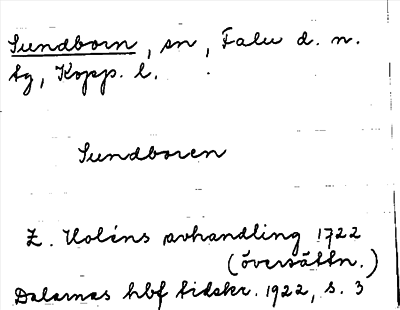 Sundborn, sn, Falu d. n.
tg, Kopp. l.
Sundboren
Z. Holéns avhandling 1722
(översättn.)
Dalarnas hbf tidskr. 1922, s. 3